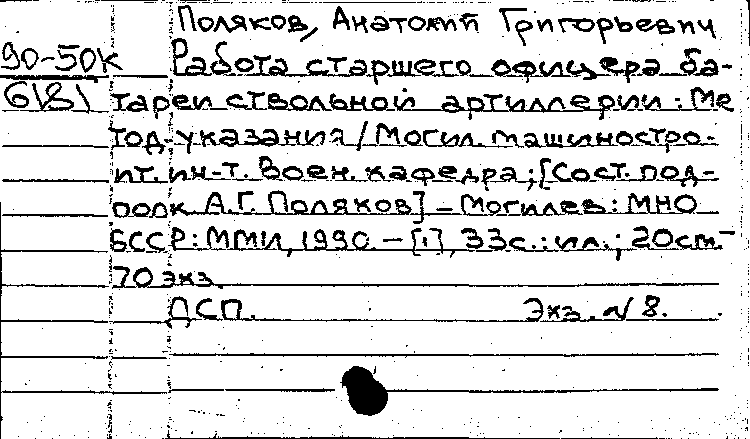 Поляков, Анатолий Григорьевич
90-50к Работа старшего офицера ба-
6(8) тареи ствольной артиллерии: Ме
тод. указания / Могил. машиностро-
ит. ин-т. Воен. кафедра; [Сост. под-
полк А.Г. Поляков] - Могилев: МНО
БССР: ММИ, 1990. - [1], 33с.: ил.; 20см. -
70 экз.
ДСП. Экз. № 8.